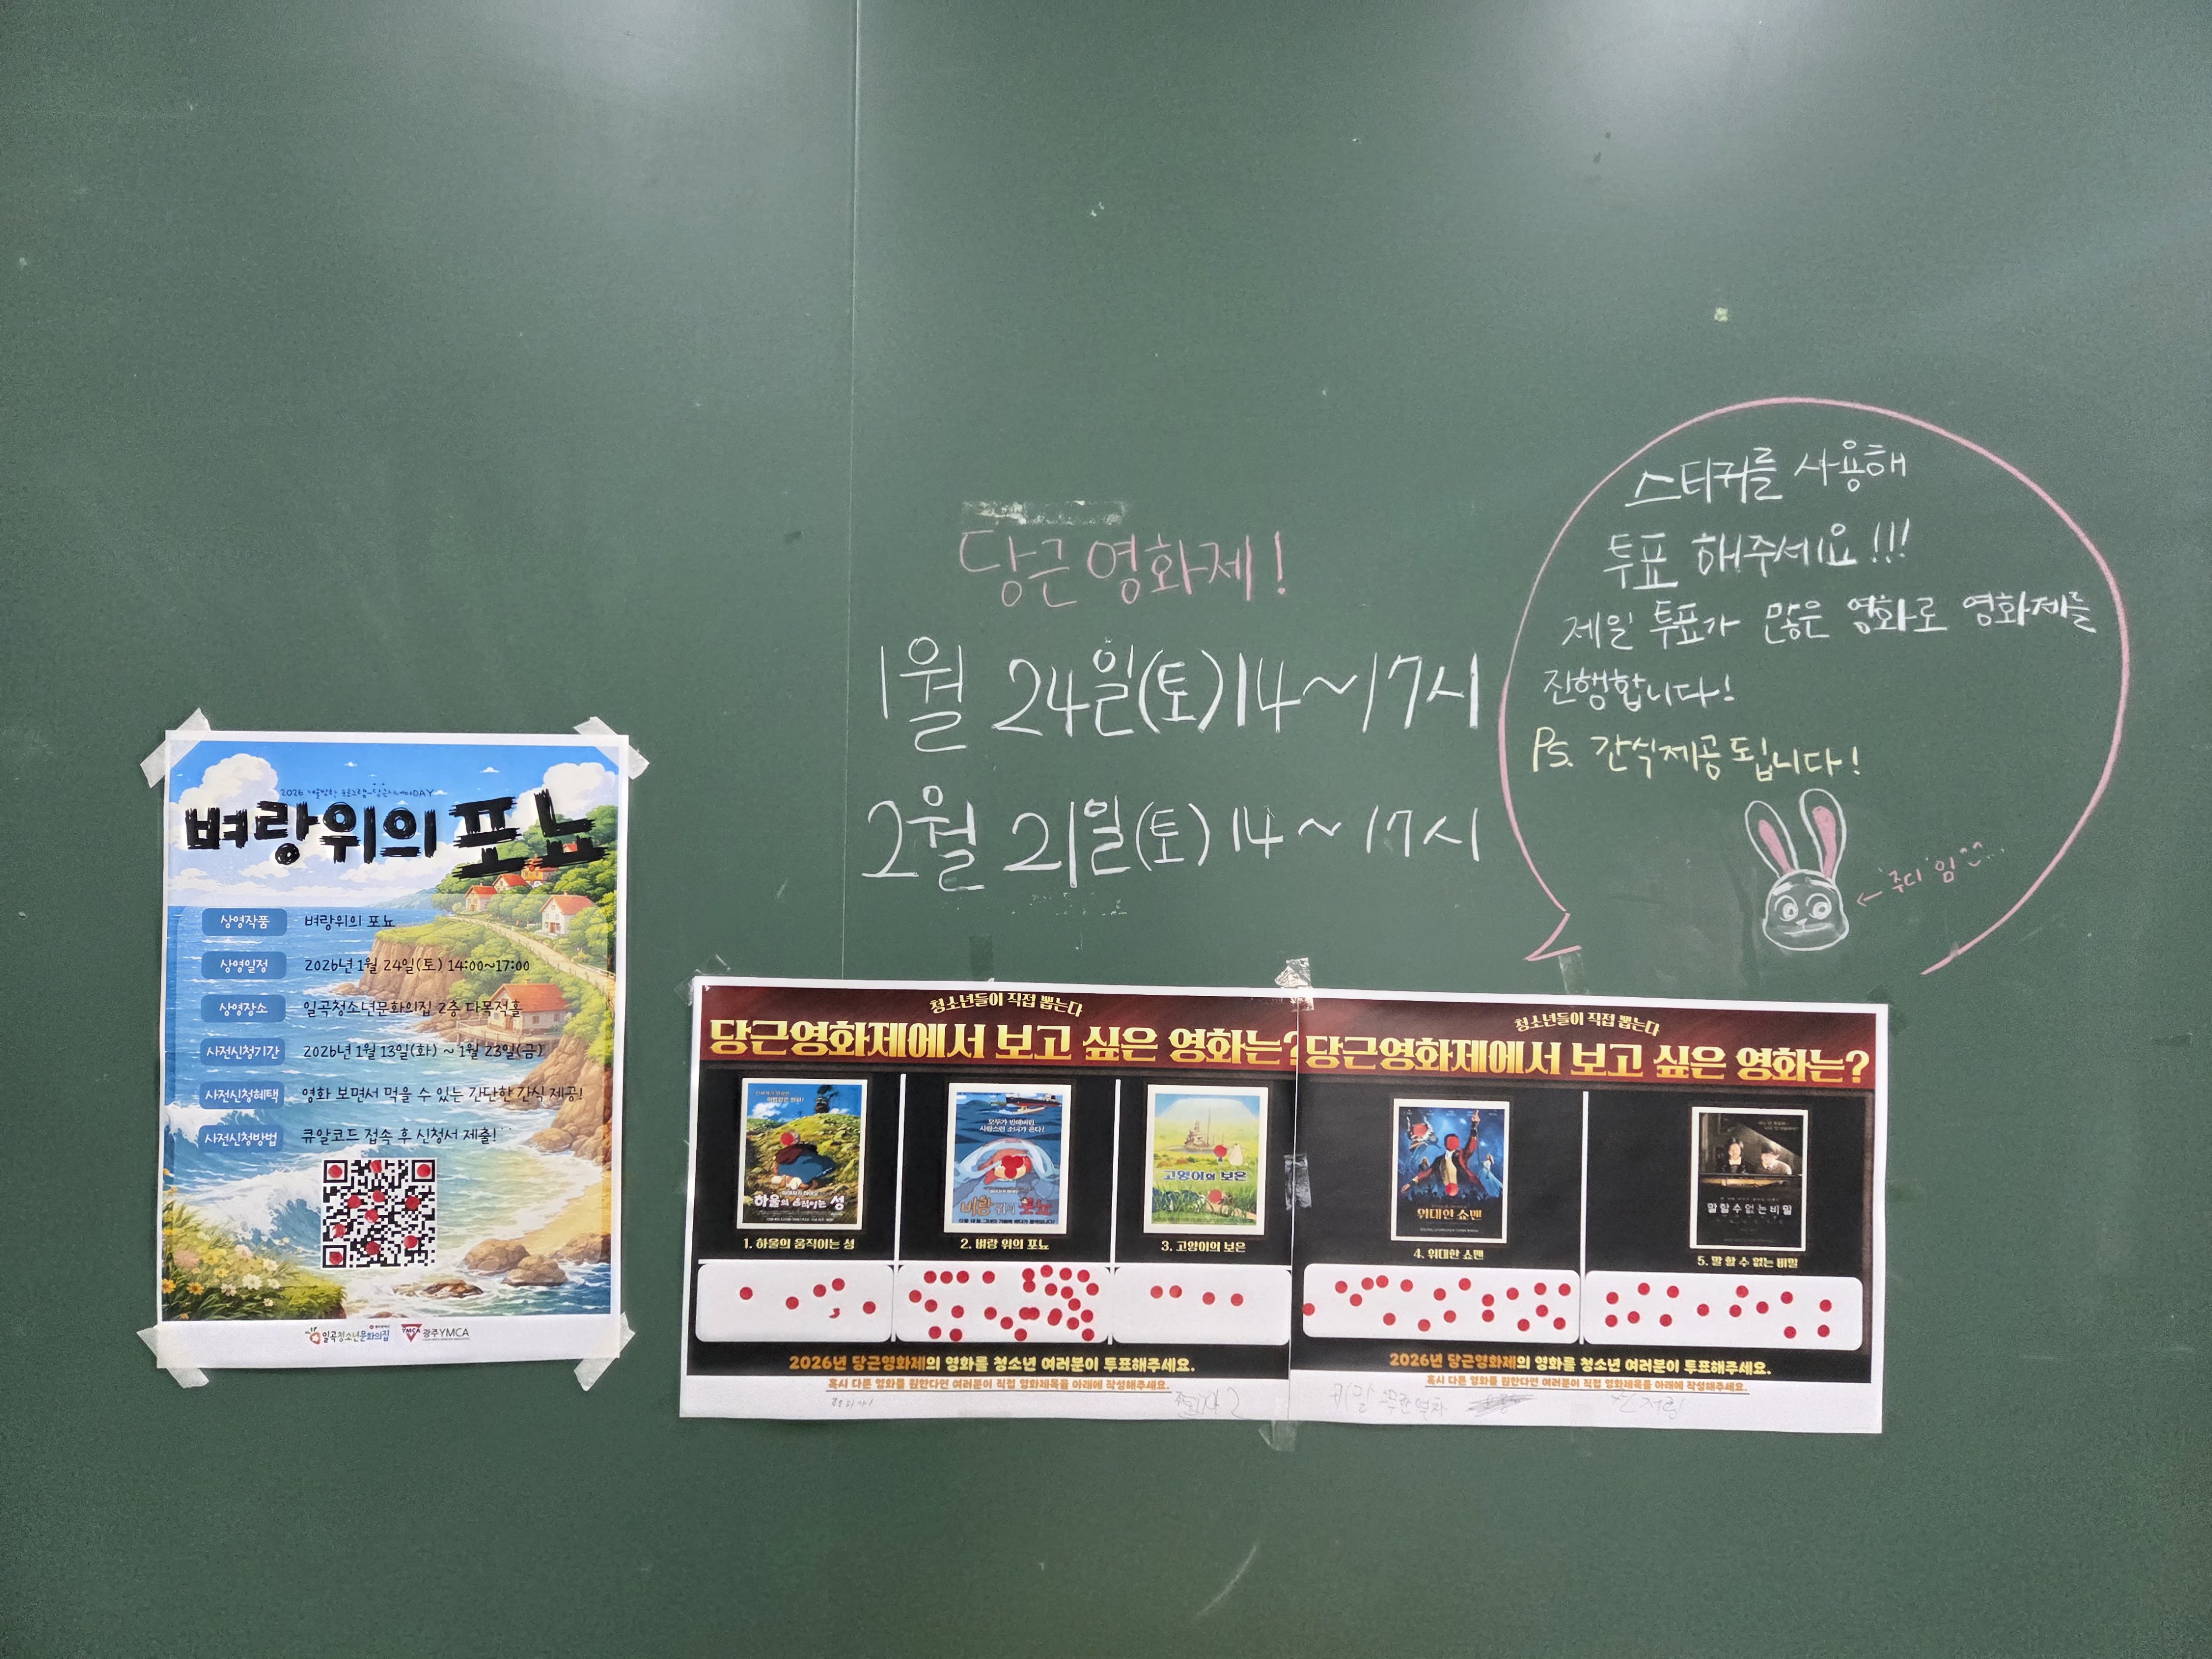 당근영화제!
1월 24일(토)14~17시
2월 21일(토)14~17시
스티커를 사용해
투표 해주세요!!!
제일 투표가 많은 영화로 영화제를
진행합니다!
Ps. 간식제공 됩니다!
←'주디'임^^...
2026
DAY
벼랑위의 포뇨
상영작품 벼랑위의 포뇨
상영일정 2026년 1월 24일(토) 14:00~17:00
상영장소 일곡청소년문화의집 2층 다목적홀
사전신청기간 2026년 1월 13일(화) ~ 1월 23일(금)
사전신청혜택 영화 보면서 먹을 수 있는 간단한 간식 제공!
사전신청방법 큐알코드 접속 후 신청서 제출!
일곡청소년문화의집
YMCA 광주YMCA
청소년들이 직접 뽑는다
당근영화제에서 보고 싶은 영화는?
하울의 움직이는 성
벼랑 위의 포뇨
고양이의 보은
1. 하울의 움직이는 성
2. 벼랑 위의 포뇨
3. 고양이의 보은
2026년 당근영화제의 영화를 청소년 여러분이 투표해주세요.
혹시 다른 영화를 원한다면 여러분이 직접 영화제목을 아래에 작성해주세요.
청소년들이 직접 뽑는다
당근영화제에서 보고 싶은 영화는?
위대한 쇼맨
말할 수 없는 비밀
4. 위대한 쇼맨
5. 말 할 수 없는 비밀
2026년 당근영화제의 영화를 청소년 여러분이 투표해주세요.
혹시 다른 영화를 원한다면 여러분이 직접 영화제목을 아래에 작성해주세요.